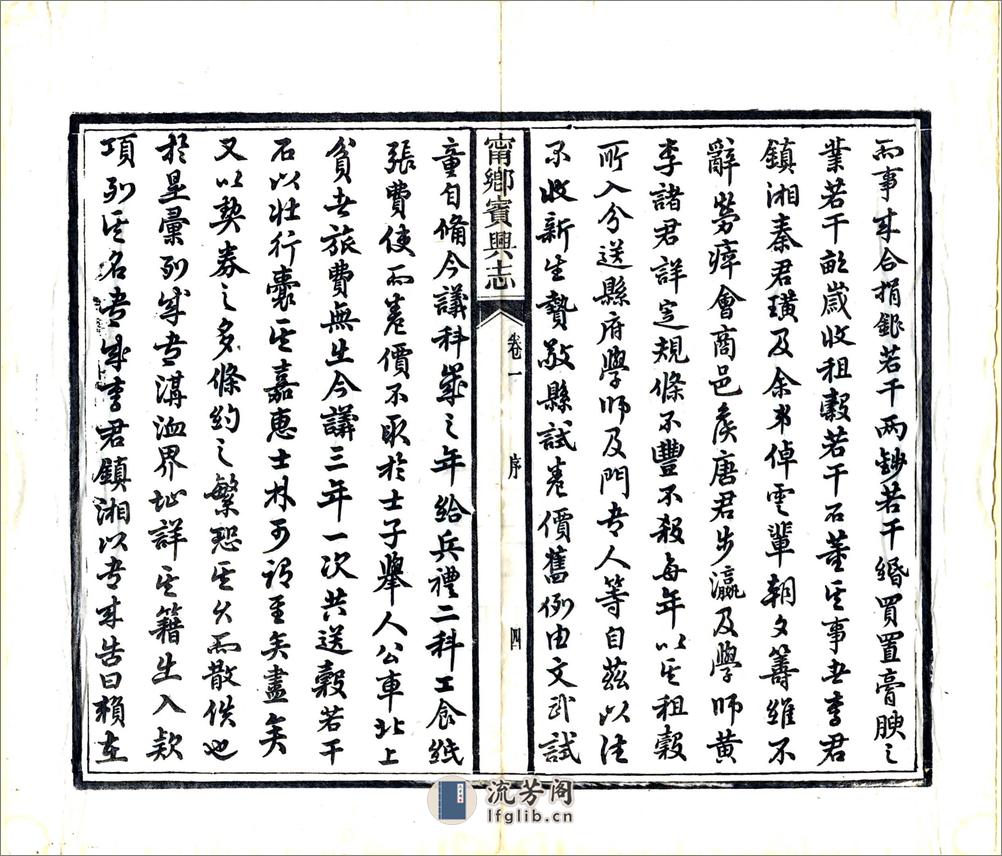 而事成合捐銀若干兩鈔若干緡買置膏腴之
業若干畝歲收租穀若干石董其事者李君
鎮湘秦君璜及余弟倬雲輩朝夕籌維不
辭勞瘁會商邑侯唐君步瀛及學師黃
李諸君詳定規條不豐不殺每年以其租穀
所入分送縣府學師及門者人等自茲以往
不收新生贄敬縣試卷價舊例由文武試
甯鄉賓興志
卷一 序 四
童自備今議科歲之年給兵禮二科工食紙
張費使而卷價不取於士子舉人公車北上
貧者旅費無出今議三年一次共送穀若干
石以壯行囊其嘉惠士林可謂至矣盡矣
又以契券之多條約之繁恐其久而散佚也
於是彙列成書溝洫界址詳其籍出入款
項列其名書成李君鎮湘以書來告曰賴在
流芳阁
lfglib.cn